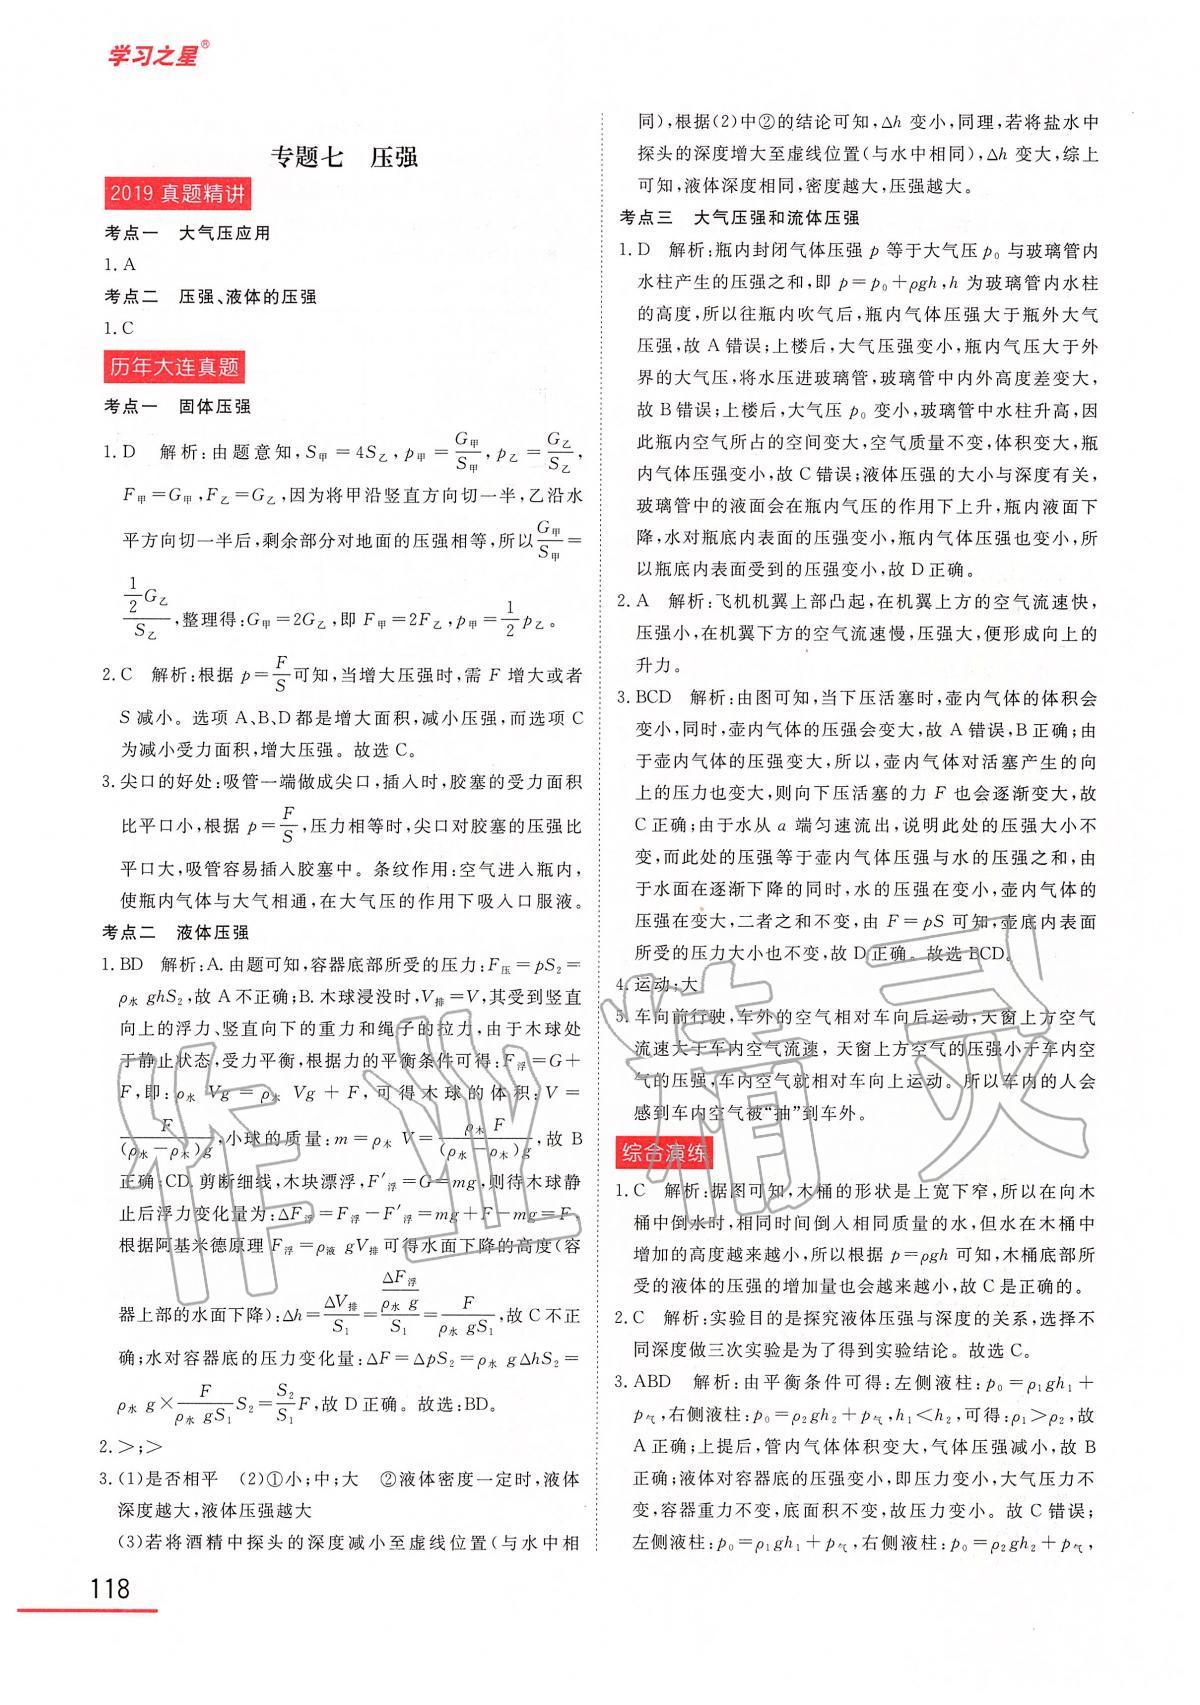 学习之星®
专题七 压强
2019 真题精讲
考点一 大气压应用
1. A
考点二 压强、液体的压强
1. C
历年大连真题
考点一 固体压强
1. D 解析:由题意知,S甲=4S乙,p甲=G甲/S甲,p乙=G乙/S乙,
F甲=G甲,F乙=G乙,因为将甲沿竖直方向切一半,乙沿水
平方向切一半后,剩余部分对地面的压强相等,所以G甲/S甲=
½G乙/S乙,整理得:G甲=2G乙,即 F甲=2F乙,p甲=1/2 p乙。
2. C 解析:根据 p=F/S可知,当增大压强时,需 F 增大或者
S 减小。选项 A、B、D都是增大面积,减小压强,而选项 C
为减小受力面积,增大压强。故选 C。
3. 尖口的好处:吸管一端做成尖口,插入时,胶塞的受力面积
比平口小,根据 p=F/S,压力相等时,尖口对胶塞的压强比
平口大,吸管容易插入胶塞中。条纹作用:空气进入瓶内,
使瓶内气体与大气相通,在大气压的作用下吸入口服液。
考点二 液体压强
1. BD 解析:A. 由题可知,容器底部所受的压力:F压=pS2=
ρ水 ghS2,故 A不正确;B. 木球浸没时,V排=V,其受到竖直
向上的浮力、竖直向下的重力和绳子的拉力,由于木球处
于静止状态,受力平衡,根据力的平衡条件可得:F浮=G+
F,即:ρ水 Vg=ρ木 Vg+F,可得木球的体积:V=
F/(ρ水-ρ木)g,小球的质量:m=ρ木 V=ρ木 F/(ρ水-ρ木)g,故 B
正确;CD. 剪断细线,木块漂浮,F′浮=G=mg,则待木球静
止后浮力变化量为:ΔF浮=F浮-F′浮=mg+F-mg=F,
根据阿基米德原理 F浮=ρ液 gV排可得水面下降的高度(容
器上部的水面下降):Δh=ΔV排/S1=(ΔF浮/ρ水 g)/S1=F/ρ水 gS1,故 C 不正
确;水对容器底的压力变化量:ΔF=ΔpS2=ρ水 gΔhS2=
ρ水 g×F/ρ水 gS1 S2=S2/S1 F,故 D 正确。故选:BD。
2. >;>
3. (1)是否相平 (2)①小;中;大 ②液体密度一定时,液体
深度越大,液体压强越大
(3)若将酒精中探头的深度减小至虚线位置(与水中相
同),根据(2)中②的结论可知,Δh 变小,同理,若将盐水中
探头的深度增大至虚线位置(与水中相同),Δh 变大,综上
可知,液体深度相同,密度越大,压强越大。
考点三 大气压强和流体压强
1. D 解析:瓶内封闭气体压强 p 等于大气压 p0 与玻璃管内
水柱产生的压强之和,即 p=p0+ρgh,h 为玻璃管内水柱
的高度,所以往瓶内吹气后,瓶内气体压强大于瓶外大气
压强,故 A 错误;上楼后,大气压强变小,瓶内气压大于外
界的大气压,将水压进玻璃管,玻璃管中内外高度差变大,
故 B错误;上楼后,大气压 p0 变小,玻璃管中水柱升高,因
此瓶内空气所占的空间变大,空气质量不变,体积变大,瓶
内气体压强变小,故 C错误;液体压强的大小与深度有关,
玻璃管中的液面会在瓶内气压的作用下上升,瓶内液面下
降,水对瓶底内表面的压强变小,瓶内气体压强也变小,所
以瓶底内表面受到的压强变小,故 D正确。
2. A 解析:飞机机翼上部凸起,在机翼上方的空气流速快,
压强小,在机翼下方的空气流速慢,压强大,便形成向上的
升力。
3. BCD 解析:由图可知,当下压活塞时,壶内气体的体积会
变小,同时,壶内气体的压强会变大,故 A 错误,B 正确;由
于壶内气体的压强变大,所以,壶内气体对活塞产生的向
上的压力也变大,则向下压活塞的力 F 也会逐渐变大,故
C正确;由于水从 a 端匀速流出,说明此处的压强大小不
变,而此处的压强等于壶内气体压强与水的压强之和,由
于水面在逐渐下降的同时,水的压强在变小,壶内气体的
压强在变大,二者之和不变,由 F=pS 可知,壶底内表面
所受的压力大小也不变,故 D正确。故选 BCD。
4. 运动;大
5. 车向前行驶,车外的空气相对车向后运动,天窗上方空气
流速大于车内空气流速,天窗上方空气的压强小于车内空
气的压强,车内空气就相对车向上运动。所以车内的人会
感到车内空气被“抽”到车外。
综合演练
1. C 解析:据图可知,木桶的形状是上宽下窄,所以在向木
桶中倒水时,相同时间倒入相同质量的水,但水在木桶中
增加的高度越来越小,所以根据 p=ρgh 可知,木桶底部所
受的液体的压强的增加量也会越来越小,故 C 是正确的。
2. C 解析:实验目的是探究液体压强与深度的关系,选择不
同深度做三次实验是为了得到实验结论。故选 C。
3. ABD 解析:由平衡条件可得:左侧液柱:p0=ρ1gh1+
p气,右侧液柱:p0=ρ2gh2+p气,h1<h2,可得:ρ1>ρ2,故
A 正确;上提后,管内气体体积变大,气体压强减小,故 B
正确;液体对容器底的压强变小,即压力变小,大气压力不
变,容器重力不变,底面积不变,故压力变小。故 C 错误;
左侧液柱:p0=ρ1gh1+p气,右侧液柱:p0=ρ2gh2+p气,
118
作业精灵